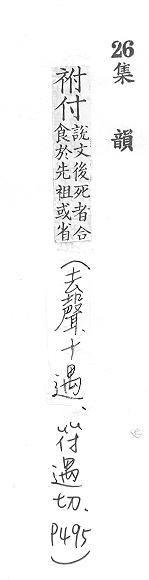 26集韻
祔付說文後死者合食於先祖或省
(去聲十遇、符遇切、P495)